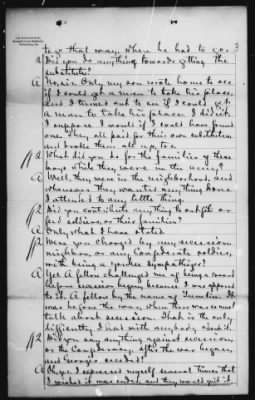 3
to go that way, when he had to go.
Q Did you do anything towards getting the
substitute?
A No, sir. Only my son wrote home to see
if I could get a man to take his place,
and I turned out to see if I could get
a man to take his place. I didn't
I suppose I would if I could have found
one. They all paid for their own substitutes
and
Q What did you do for the families of these
boys while they were in the army?
A Well, they were in the neighborhood, and
whenever they wanted anything done
I attended to any little thing.
Q Did you contribute anything to outfit or
soldiers, or their families?
A Only what I have stated
Q Were you charged by any secession
neighbor, or any Confederate soldier,
with being a Yankee sympathizer?
A Yes. A fellow challenged me of being a coward
before secession began because I was opposed
to it. A fellow by the name of It
was before the war, when there was a must
talk about secession. That is the only
difficulty I had with anybody about it.
Q Did you say anything against secession
or the Confederacy, after the war began,
and Georgia seceded?
A I expressed myself several times that
I wished it was ended and they would quit it.